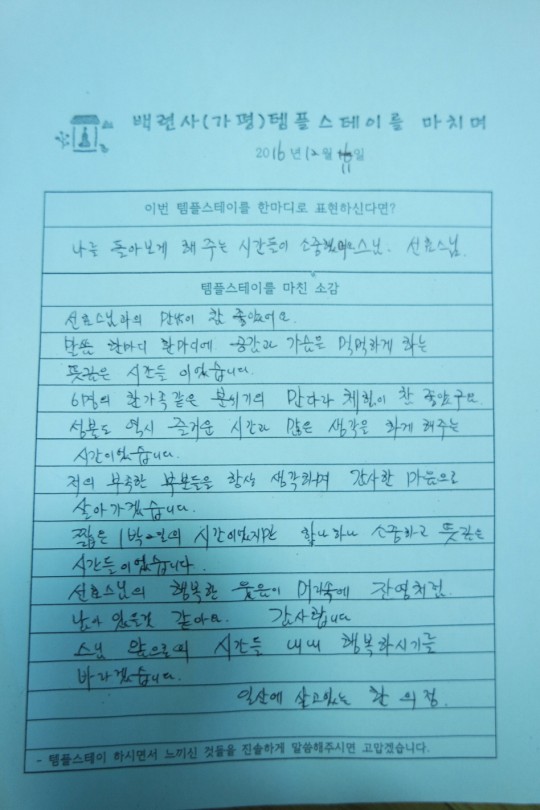 백련사(가평)템플스테이를 마치며
2016년 12월 11일
이번 템플스테이를 한마디로 표현하신다면?
나를 돌아보게 해 주는 시간들이 소중했어요 스님. 선효스님.
템플스테이를 마친 소감
선효스님과의 만남이 참 좋았어요.
말씀 한마디 한마디에 공감과 가슴은 먹먹하게 하는
뜻깊은 시간들 이었습니다.
6명의 한가족같은 분위기의 만다라 체험이 참 좋았구요.
성불도 역시 즐거운 시간과 많은 생각을 하게 해주는
시간이었습니다.
저의 부족한 부분들을 항상 생각하며 감사한 마음으로
살아가겠습니다.
짧은 1박2일의 시간이었지만 하나하나 소중하고 뜻깊은
시간들이었습니다.
선효스님의 행복한 웃음이 머리속에 잔영처럼
남아 있을것 같아요. 감사합니다
스님 앞으로의 시간들 내내 행복하시기를
바라겠습니다.
일산에 살고있는 한 의정.
- 템플스테이 하시면서 느끼신 것들을 진솔하게 말씀해주시면 고맙겠습니다.